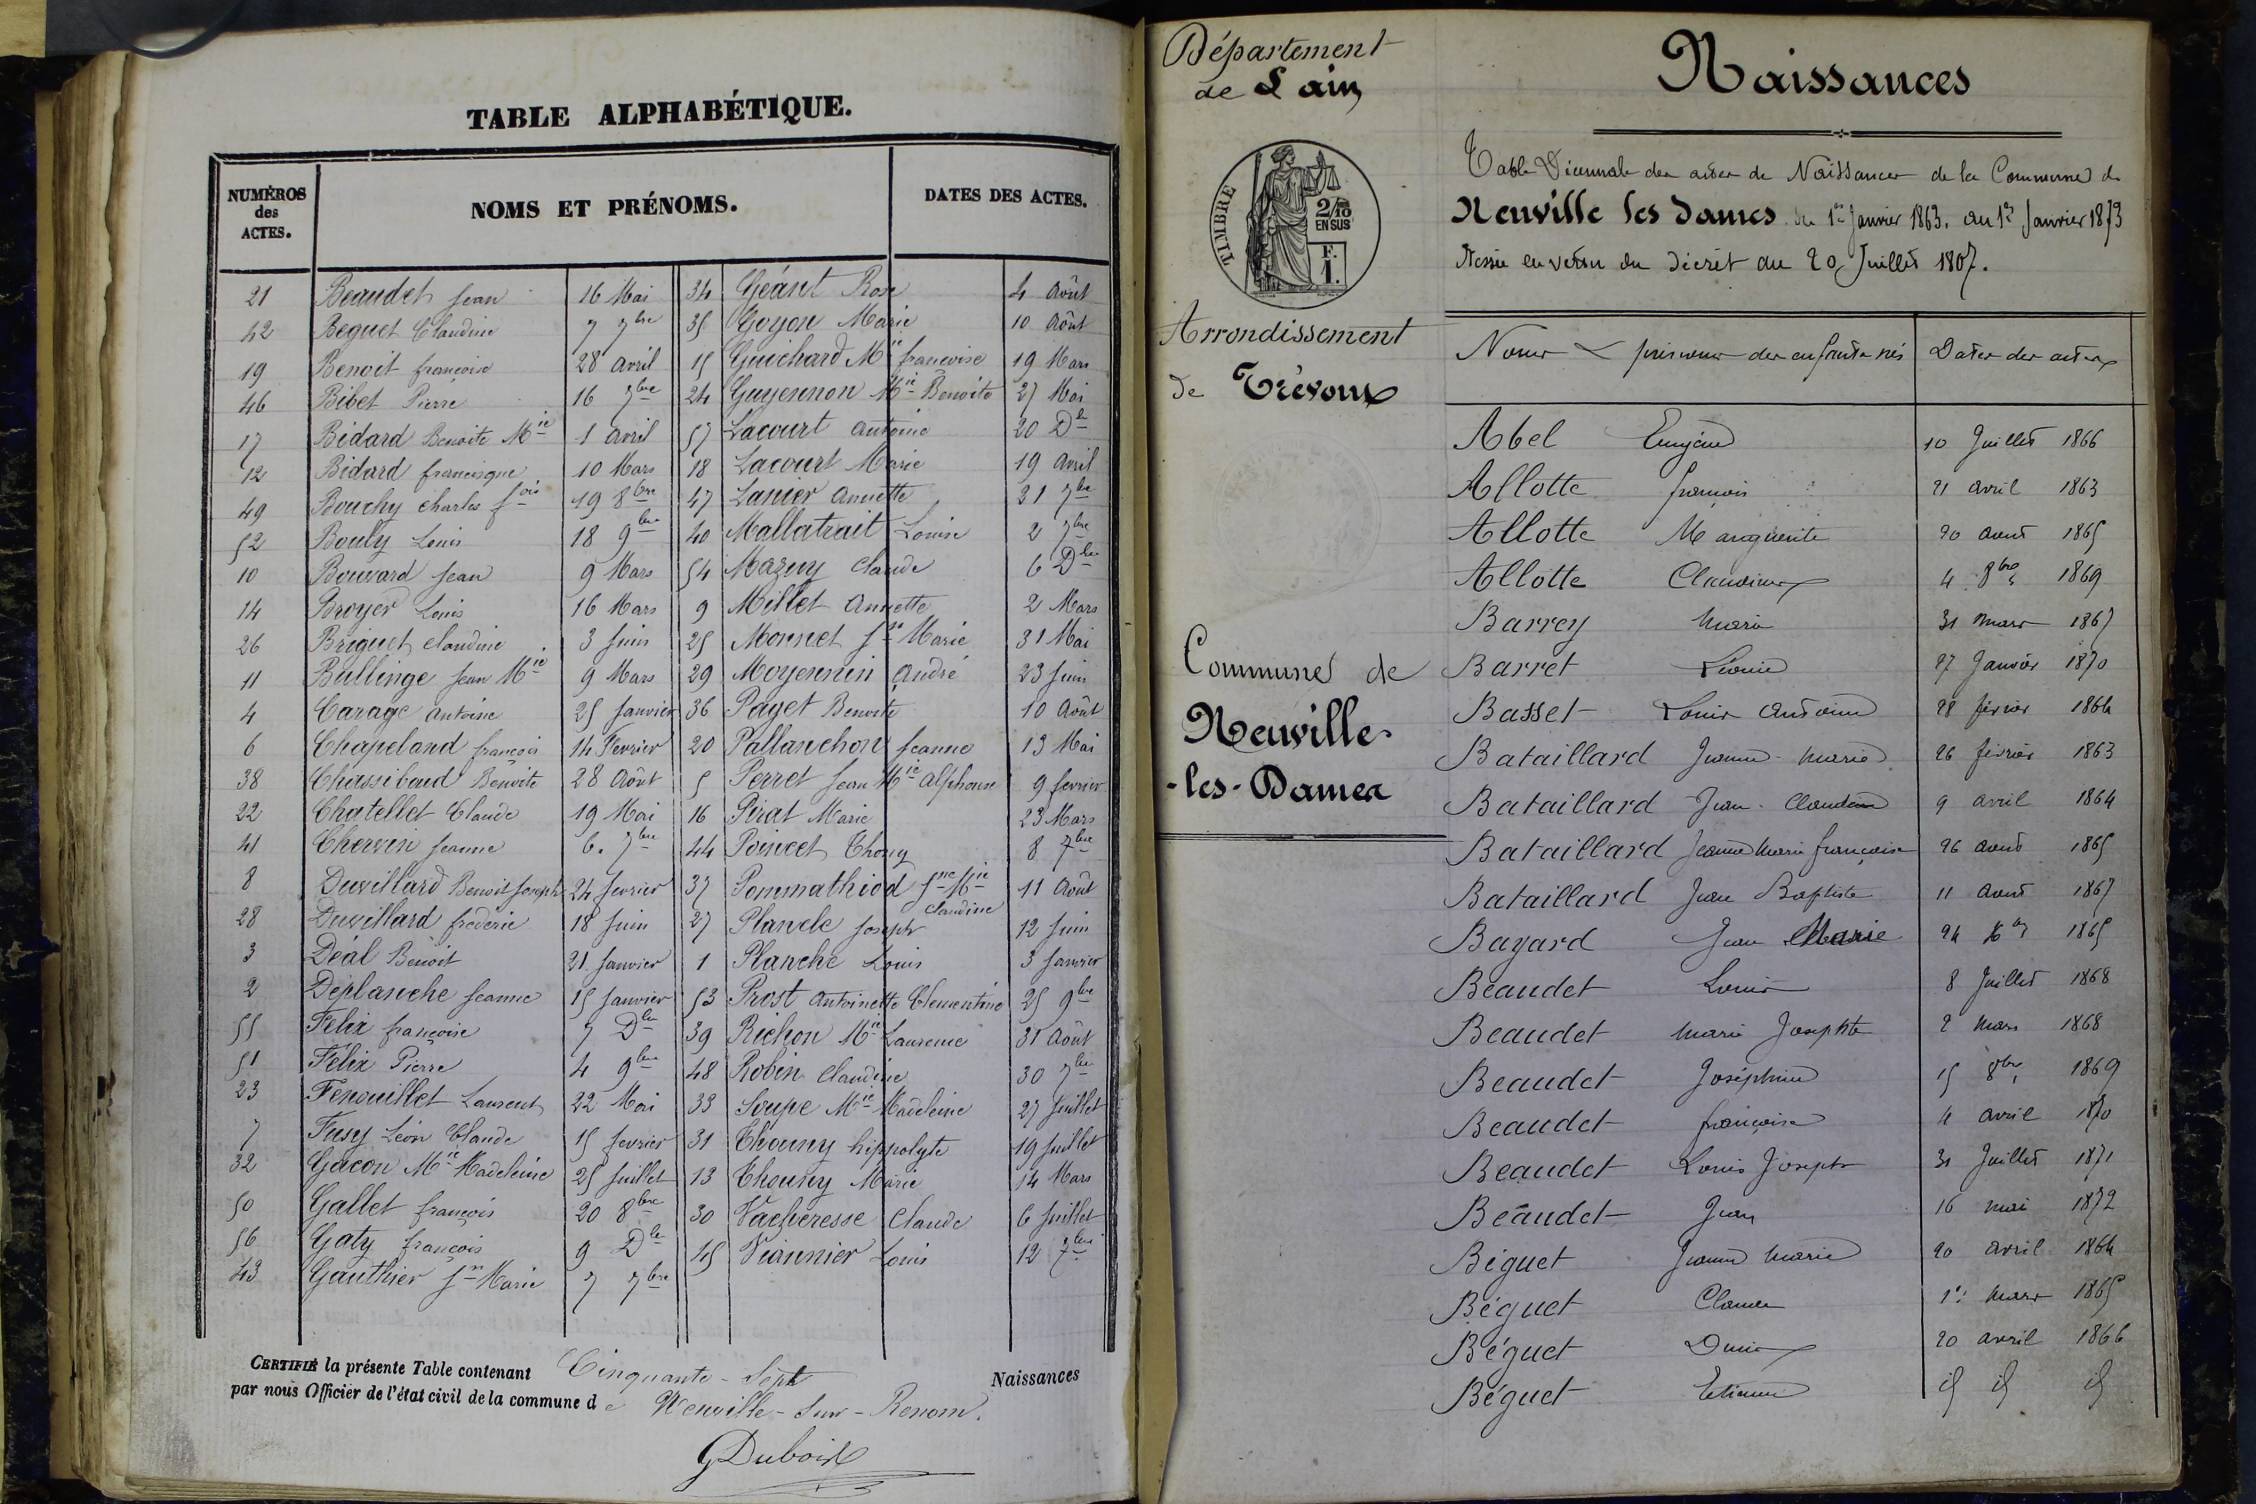 TABLE ALPHABÉTIQUE.
NUMÉROS des ACTES.
NOMS ET PRÉNOMS.
DATES DES ACTES.
21 Beaudet Jean 16 Mai
42 Beguet Claudine 7 7bre
19 Benoit françoise 28 avril
46 Bibet Pierre 16 7bre
17 Bidard Benoite Mie 1 avril
12 Bidard francisque 10 Mars
49 Bouchy Charles fois 19 8bre
52 Bouly Louis 18 9bre
10 Bouvard Jean 9 Mars
14 Broyer Louis 16 Mars
26 Briguet Claudine 3 Juin
11 Bullinge Jean Mie 9 Mars
4 Carage Antoine 25 Janvier
6 Chapeland françois 14 Fevrier
38 Chassibaud Benoite 28 Août
22 Chatellet Claude 19 Mai
41 Chervin Jeanne 6. 7bre
8 Duvillard Benoit Joseph 24 fevrier
28 Duvillard frederic 18 Juin
3 Déal Benoit 21 Janvier
2 Déplanche Jeanne 15 Janvier
55 Félix françoise 7 Dbre
51 Félix Pierre 4 9bre
23 Fenouillet Laurent 22 Mai
7 Fusy Léon Claude 15 fevrier
32 Gacon Mie Madeleine 25 Juillet
50 Gallet françois 20 8bre
56 Gaty françois 9 Dbre
43 Gauthier Jne Marie 7 7bre
34 Géant Rose 4 Août
35 Goyon Marie 10 Août
15 Guichard Mie françoise 19 Mars
24 Guyennon Mie Benoite 27 Mai
57 Lacourt antoine 20 Dbre
18 Lacourt Marie 19 avril
47 Lanier annette 21 7bre
40 Mallatrait Louise 2 7bre
54 Mazuy Claude 6 Dbre
9 Millet Annette 2 Mars
25 Monnet Jne Marie 31 Mai
29 Moyennin André 23 Juin
36 Payet Benoite 10 Août
20 Pallanchon Jeanne 13 Mai
5 Perret Jean Mie alphonse 9 fevrier
16 Pirat Marie 23 Mars
44 Poincet Thony 8 7bre
37 Pommathiod Jne Mie Claudine 11 Août
27 Planche Joseph 12 Juin
1 Planche Louis 3 Janvier
53 Prost Antoinette Clementine 25 9bre
39 Richon Mie Laurence 31 Août
48 Robin Claudine 30 7bre
33 Soupe Mie Madeleine 27 Juillet
31 Thouny hippolyte 19 Juillet
13 Thouny Marie 14 Mars
30 Vacheresse Claude 6 Juillet
45 Viannier Louis 12 7bre
CERTIFIÉ la présente Table contenant Cinquante-Sept Naissances
par nous Officier de l'état civil de la commune de Neuville-Sur-Renom.
GDubois
Département
de L'ain
TIMBRE
2/10
EN SUS
F.
1.
Arrondissement
de Trévoux
Commune de
Neuville-
-les-Dames
Naissances
Table Décennale des actes de Naissances de la Commune de
Neuville les Dames du 1er Janvier 1863. au 1er Janvier 1873
Dressée en vertu du Décret du 20 Juillet 1807.
Noms & prénoms des enfants nés Dates des actes
Abel Eugène 10 Juillet 1866
Allotte françois 21 avril 1863
Allotte Marguerite 20 aout 1865
Allotte Claudine 4 8bre 1869
Barrey Marie 31 mars 1867
Barret Léonie 27 Janvier 1870
Basset Louis Antoine 28 février 1864
Bataillard Jeanne-Marie 26 février 1863
Bataillard Jean-Claudin 9 avril 1864
Bataillard Jeanne Marie françoise 26 aout 1865
Bataillard Jean Baptiste 11 aout 1867
Bayard Jean Marie 24 Xbre 1865
Beaudet Louis 8 Juillet 1868
Beaudet Marie Josephte 2 mars 1868
Beaudet Joséphine 15 8bre 1869
Beaudet françoise 4 avril 1870
Beaudet Louis Joseph 31 Juillet 1871
Beaudet Jean 16 mai 1872
Béguet Jeanne Marie 20 avril 1864
Béguet Claude 1er mars 1865
Béguet Denis 20 avril 1866
Béguet Etienne id id id